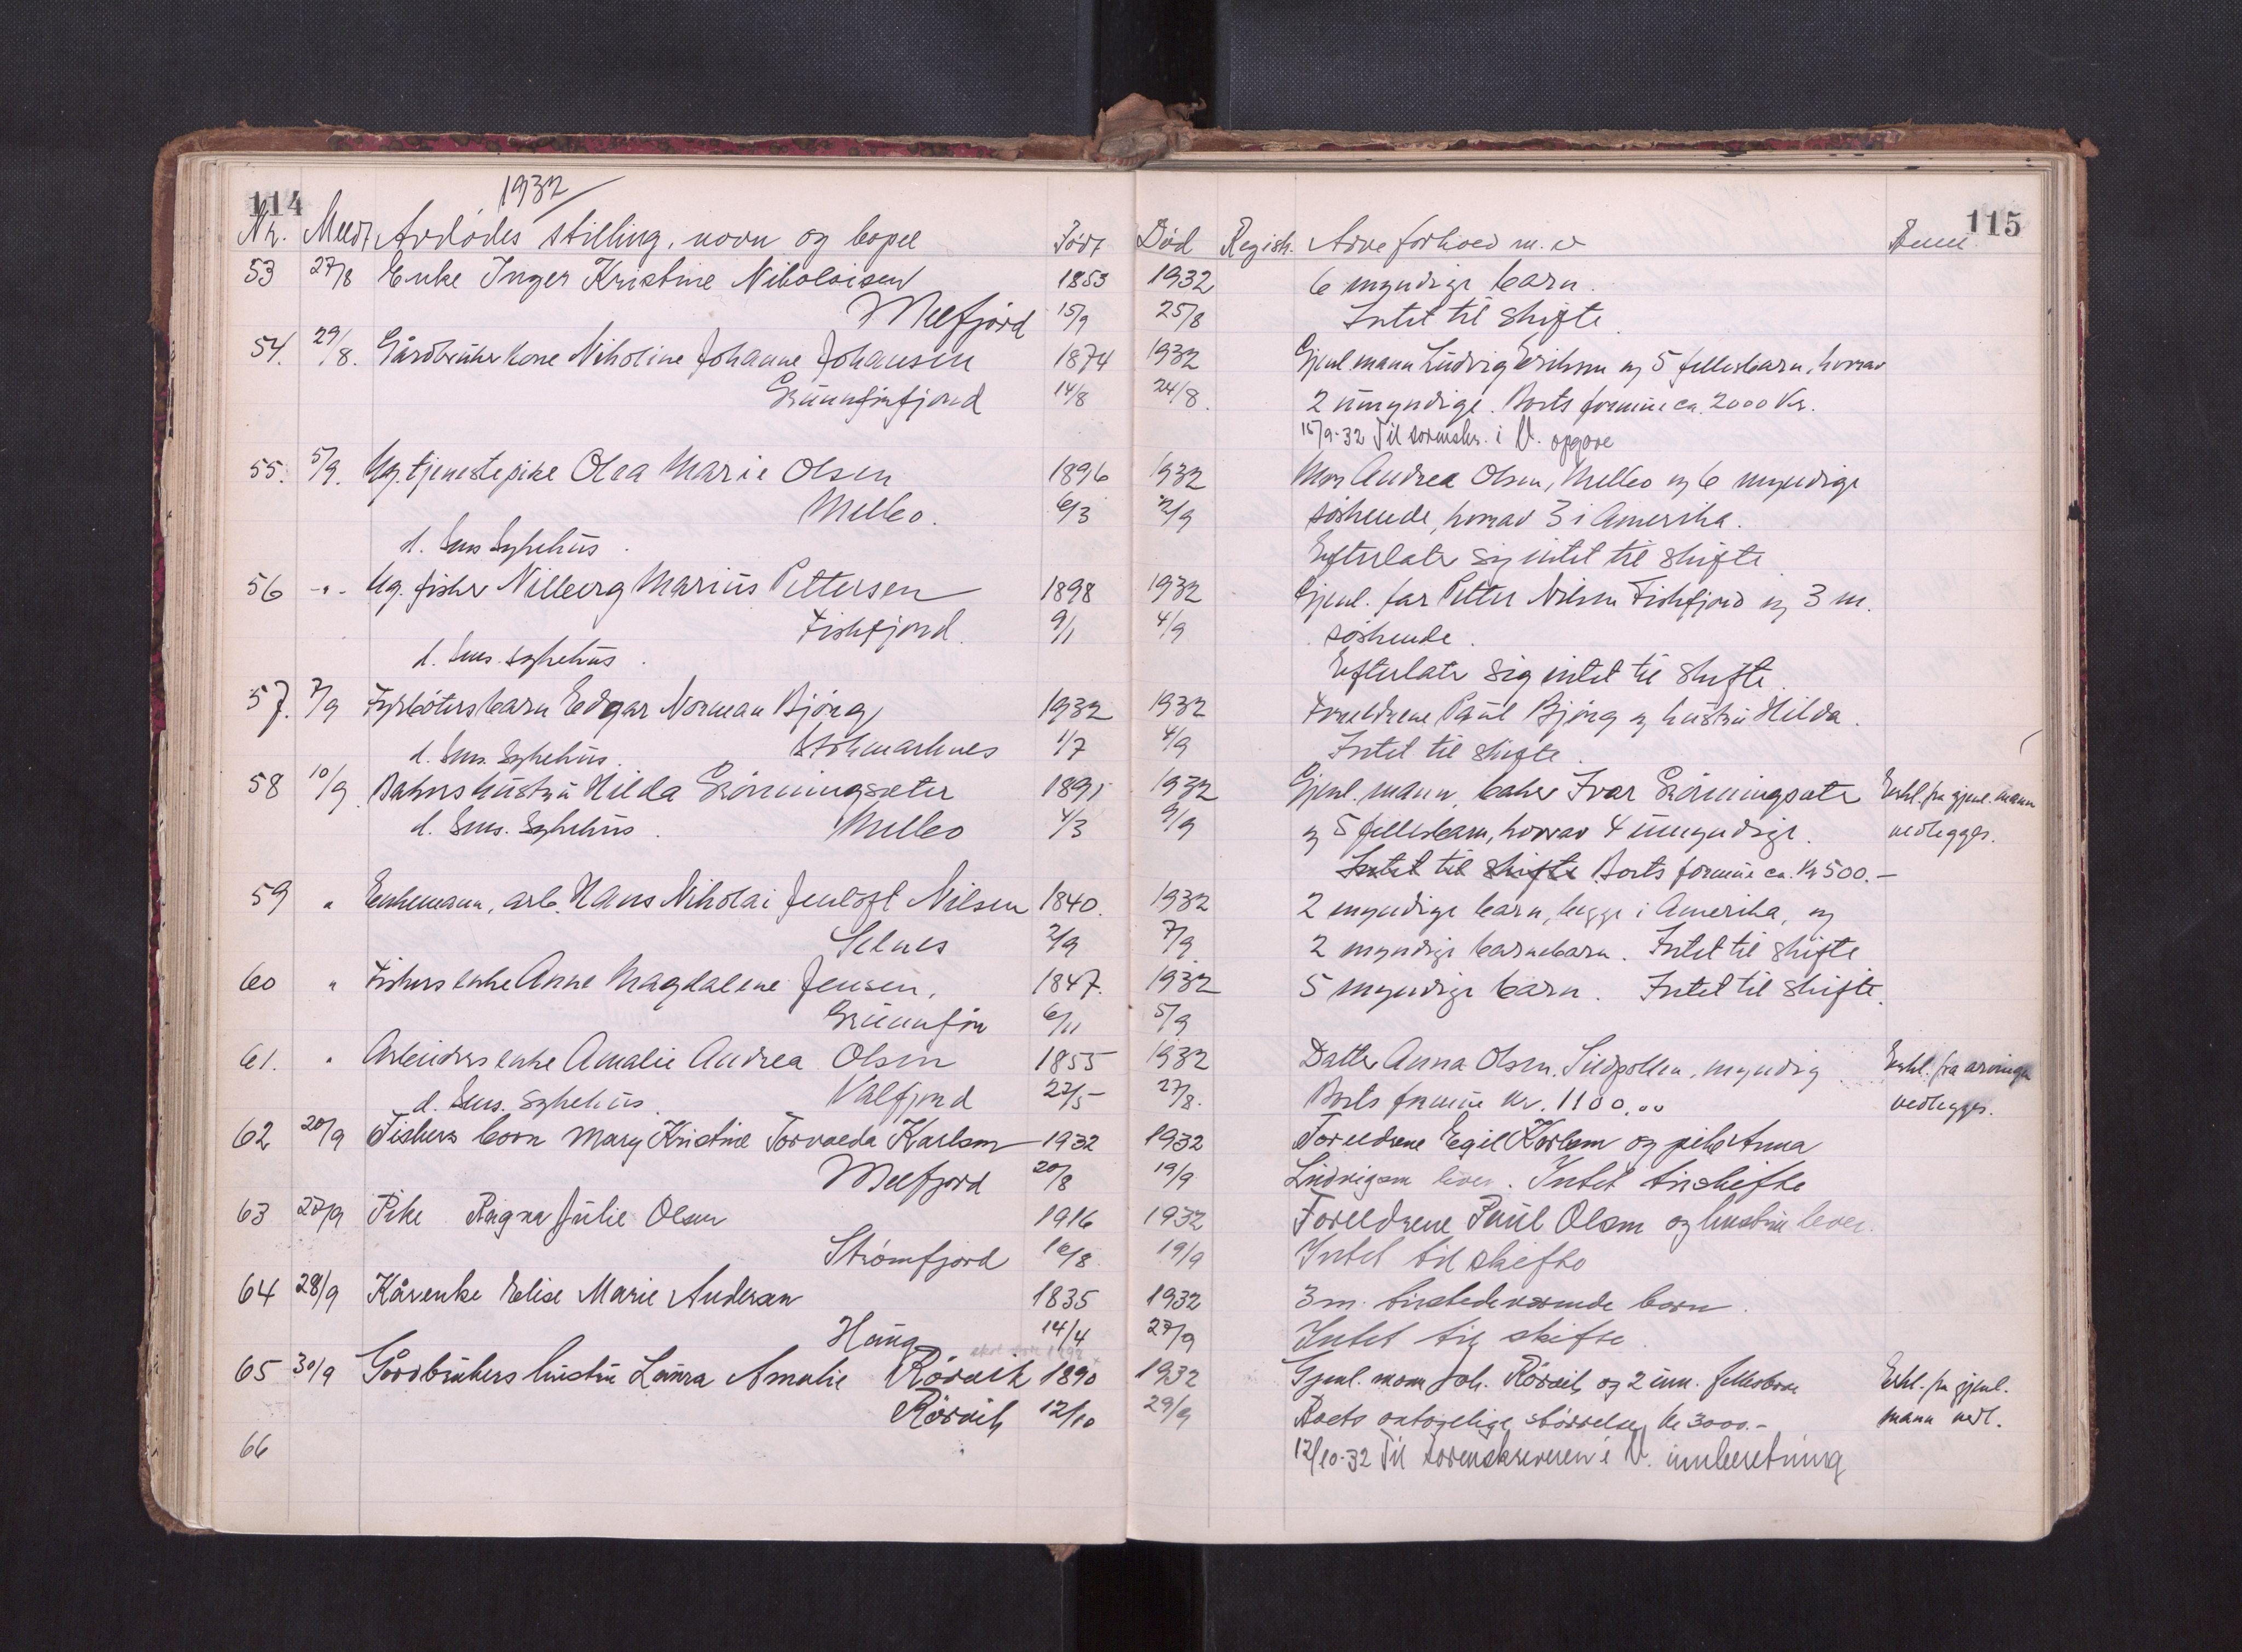 114
1932
115
Nr. Meldt Avdødes stilling, navn og bopel Født Død Registr. Arveforhold m.v
53 27/8 Enke Inger Kristine Nikolaisen 1853 1932 6 myndige barn.
Melfjord 15/9 25/8 Intet til skifte
54. 29/8. Gårdbruker kone Nikoline Johanne Johansen 1874 1932 Gjenl. mann Ludvig Eriksen og 5 fellesbarn, hvorav
Grunnfjrfjord 14/8 24/8. 2 umyndige. Boets formue ca. 2000 kr.
15/9-32 Til sorenskr. i V. opgave
55. 5/9. Ug. tjenestepike Olea Marie Olsen 1896 1932 Mor Andrea Olsen, Melbo og 6 myndige
Melbo. 6/3 2/9 søskende, hvorav 3 i Amerika.
d. Sms Sykehus. Efterlater sig intet til skifte
56 -"- Ug. fisker Nilberg Marius Pettersen 1898 1932 Gjenl. far Petter Nilsen Fiskfjord og 3 m.
Fiskfjord. 9/1 4/9 søskende.
d. Sms. sykehus. Efterlater sig intet til skifte.
57. 7/9 Fyrbøters barn Edgar Norman Bjørg 1932 1932 Foreldrene Paul Bjørg og hustru Hilda.
d. Sms. Sykehus. Stokmarknes 1/7 4/9 Intet til skifte.
58 10/9 Bakers hustru Hilda Grönningsæter 1891 1932 Gjenl. mann, baker Ivar Grönningsæter Erkl. fra gjenl. mann
d. Sms. Sykehus. Melbo 4/3 9/9 og 5 fellesbarn, hvorav 4 umyndige. vedlegges.
Intet til skifte Boets formue ca. kr 500.-
59 " Enkemann, arb. Hans Nikolai Jentoft Nilsen 1840. 1932 2 myndige barn, begge i Amerika, og
Selnes 2/9 7/9. 2 myndige barnebarn. Intet til skifte
60 " Fiskers enke Anne Magdalene Jensen, 1847. 1932 5 myndige barn. Intet til skifte.
Grunnfør 6/11 5/9
61. " Arbeiders enke Amalie Andrea Olsen 1855 1932 Datter Anna Olsen, Sildpollen, myndig Erkl. fra arvinge
d. Sms. Sykehus. Valfjord 22/5 27/8. Boets formue kr. 1100,00 vedlegges.
62 20/9 Fiskers barn Mary Kristine Torvalda Karlsen 1932 1932 Foreldrene Egil Karlsen og pike Anna
Melfjord 20/8 19/9 Ludvigsen lever. Intet til skifte
63 27/9 Pike Ragna Julie Olsen 1916 1932 Foreldrene Paul Olsen og hustru lever.
Strømfjord 10/8 19/9 Intet til skifte
64 28/9 Kårenke Elise Marie Andersen 1835 1932 3 m. tilstedeværende barn.
Haug 14/4 27/9 Intet til skifte.
65 30/9 Gårdbrukers hustru Laura Amalie Rørvik 1890 1932 Gjenl. mann Joh. Rørvik og 2 um. fellesbarn Erkl. fra gjenl.
Rørvik 12/10 29/9 Boets antagelige størrelse kr 3000.- mann vedl.
66 12/10-32 Til sorenskriveren i V. innberetning